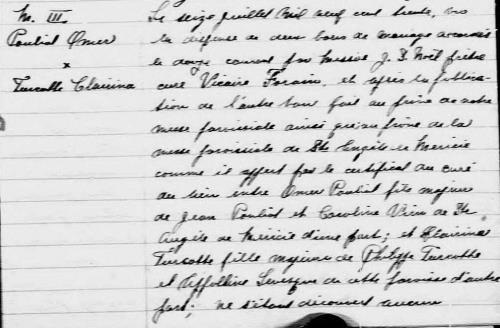 M. III.
Pouliot Omer
x
Turcotte Clairina
Le seize juillet mil neuf cent trente, vu
la dispense de deux bans de mariage accordée
le douze courant par Messire J. B. Noël prêtre
curé Vicaire Forain, et après la publica-
tion de l'autre ban fait au prône de notre
messe paroissiale ainsi qu'au prône de la
messe paroissiale de Ste Angèle de Mericie
comme il appert par le certificat du curé
du lieu entre Omer Pouliot fils majeur
de Jean Pouliot et Caroline de St.
Angèle de Méricie d'une part; et Clairina
Turcotte fille majeure de Philippe Turcotte
et Levesque de cette paroisse d'autre
part; ne s'étant découvert aucun